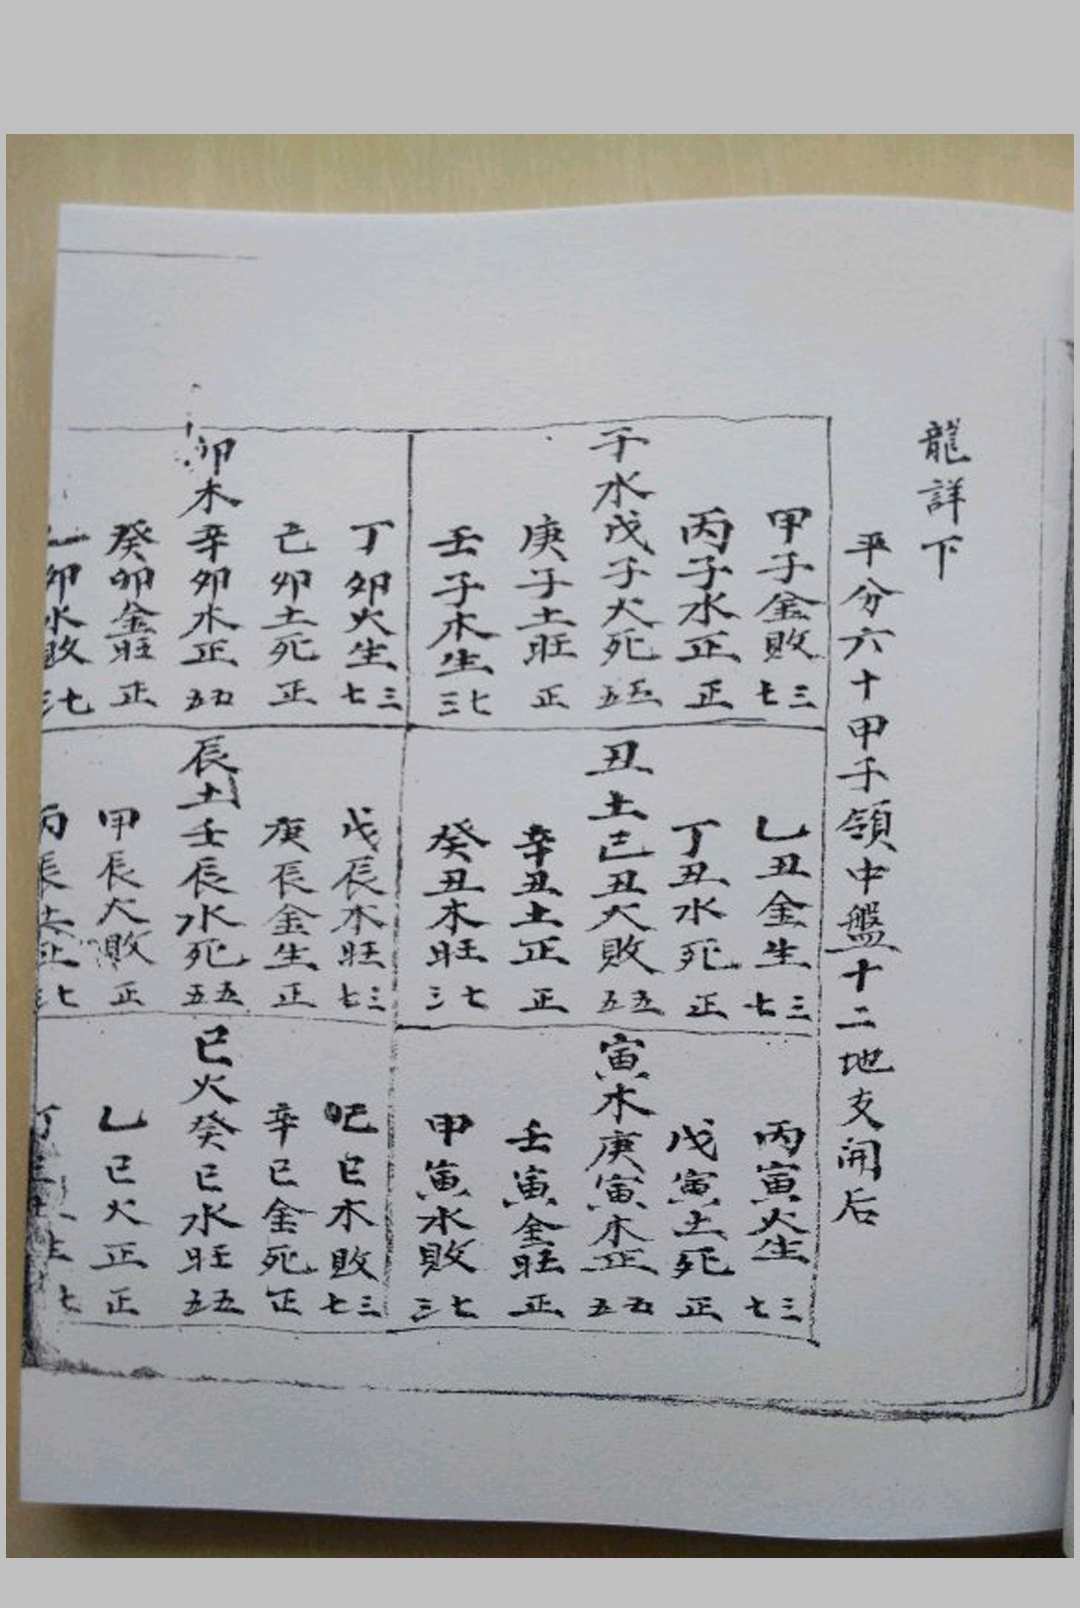 龍詳下
平分六十甲子領中盤十二地支開后
子水
甲子金敗 七三
丙子水正 正
戊子火死 五五
庚子土旺 正
壬子木生 三七
丑土
乙丑金生 七三
丁丑水死 正
己丑火敗 五五
辛丑土正 正
癸丑木旺 三七
寅木
丙寅火生 七三
戊寅土死 正
庚寅木正 五五
壬寅金旺 正
甲寅水敗 三七
卯木
丁卯火生 七三
己卯土死 正
辛卯木正 五五
癸卯金旺 正
卯水敗 三七
辰土
戊辰木旺 七三
庚辰金生 正
壬辰水死 五五
甲辰火敗 正
丙辰土正 三七
巳火
巳木敗 七三
辛巳金死 正
癸巳水旺 五五
乙巳火正 正
丁 生 七